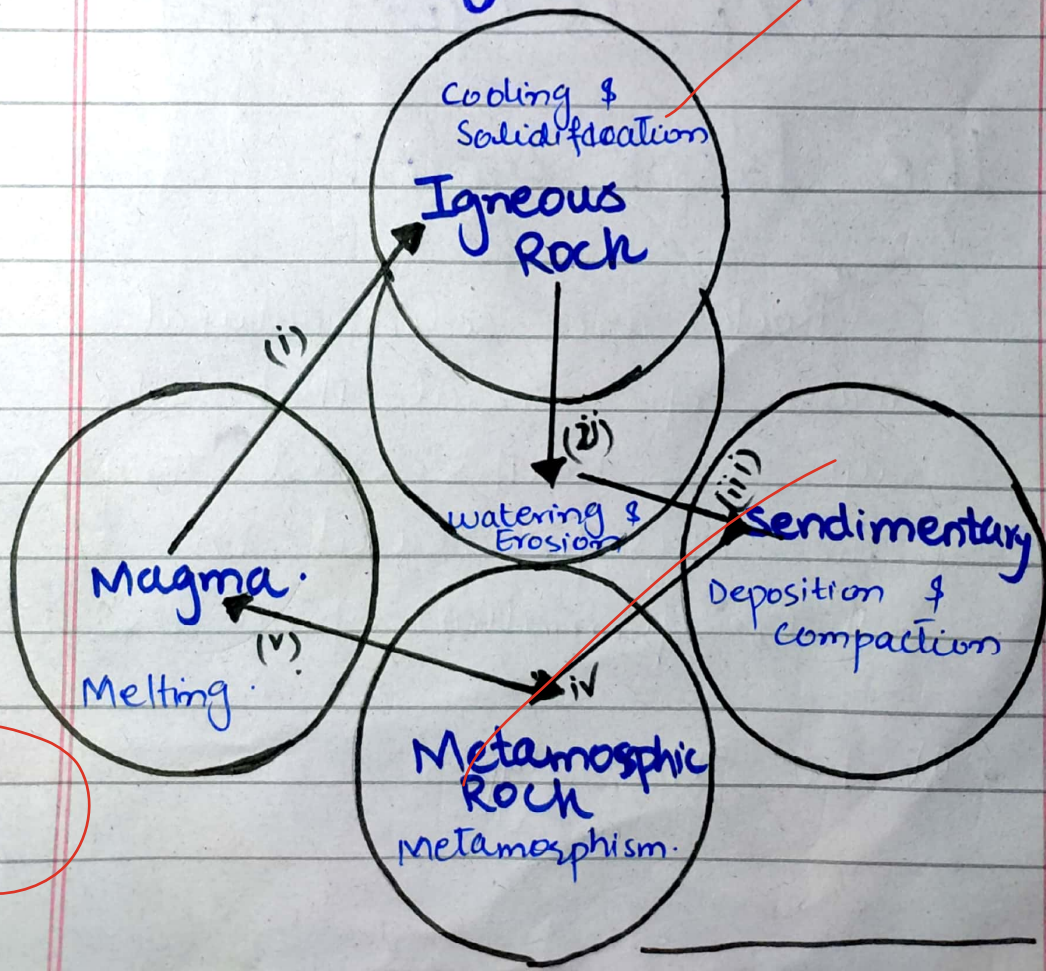 Cooling &
Solidifdcation
Igneous
Rock
(i)
(ii)
(iii)
watering &
Erosion
Sendimentary
Magma.
Deposition &
compaction
(v)
iv
Melting.
Metamosphic
Rock
Metamosphism.